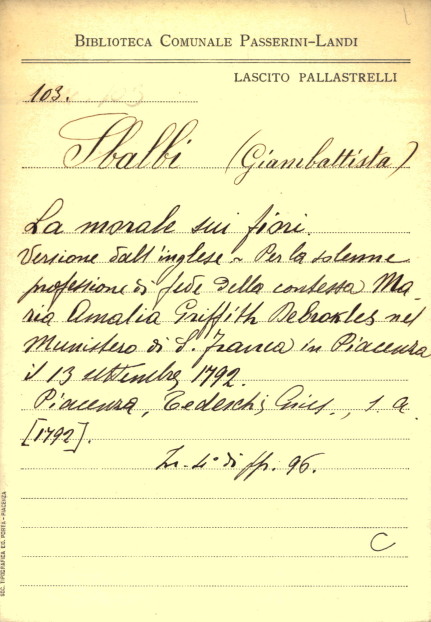 BIBLIOTECA COMUNALE PASSERINI-LANDI
LASCITO PALLASTRELLI
103.
Sbalbi (Giambattista)
La morale sui fiori.
Versione dall'inglese - Per la solenne
professione di fede della contessa Ma-
ria Amalia Griffith DeBrokles nel
Munistero di S. Franca in Piacenza
il 13 settembre 1792.
Piacenza, Tedeschi, Gius., s. a.
[1792].
In-4° di pp. 96.
C
SOC. TIPOGRAFICA ED. PORTA - PIACENZA